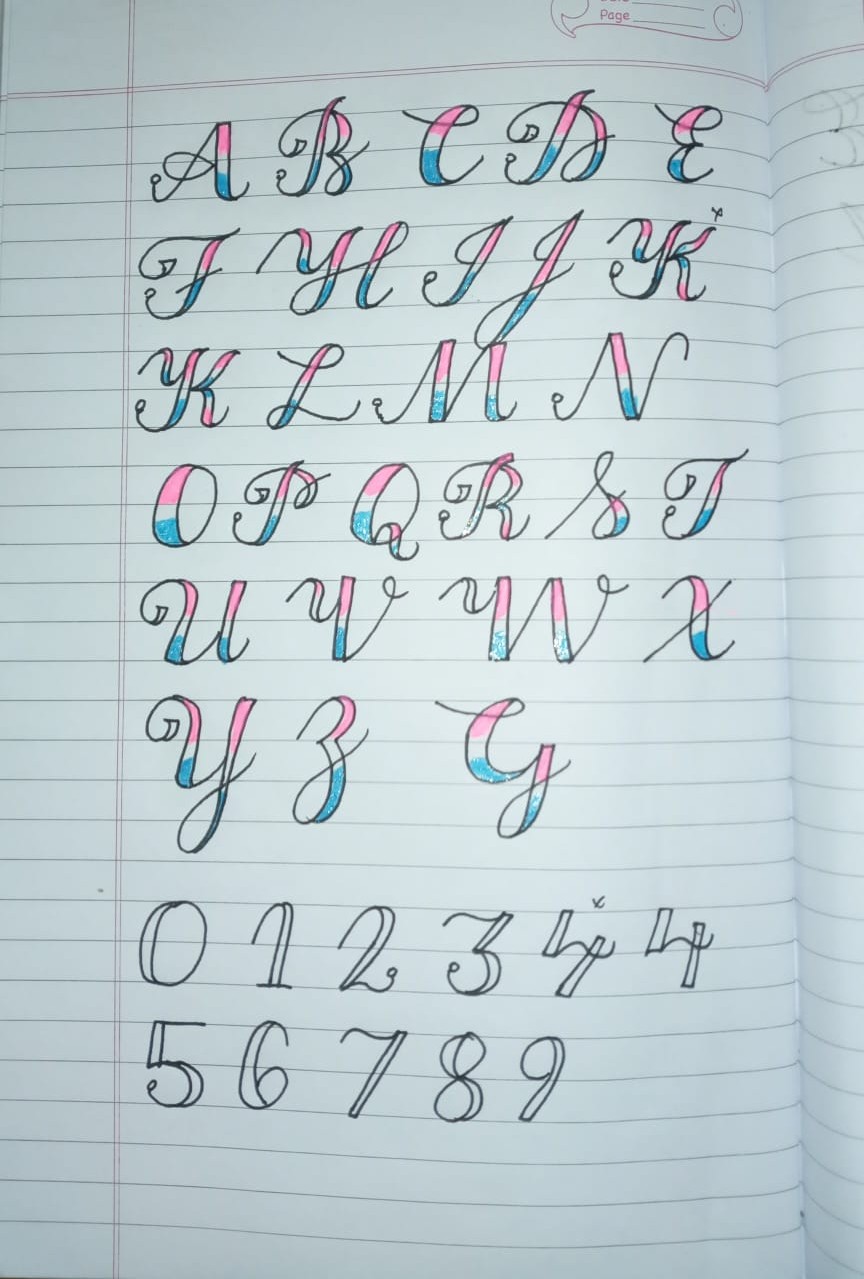 Page
A B C D E
F H I J K x
K L M N
O P Q R S T
U V W X
Y Z G
0 1 2 3 4 x 4
5 6 7 8 9